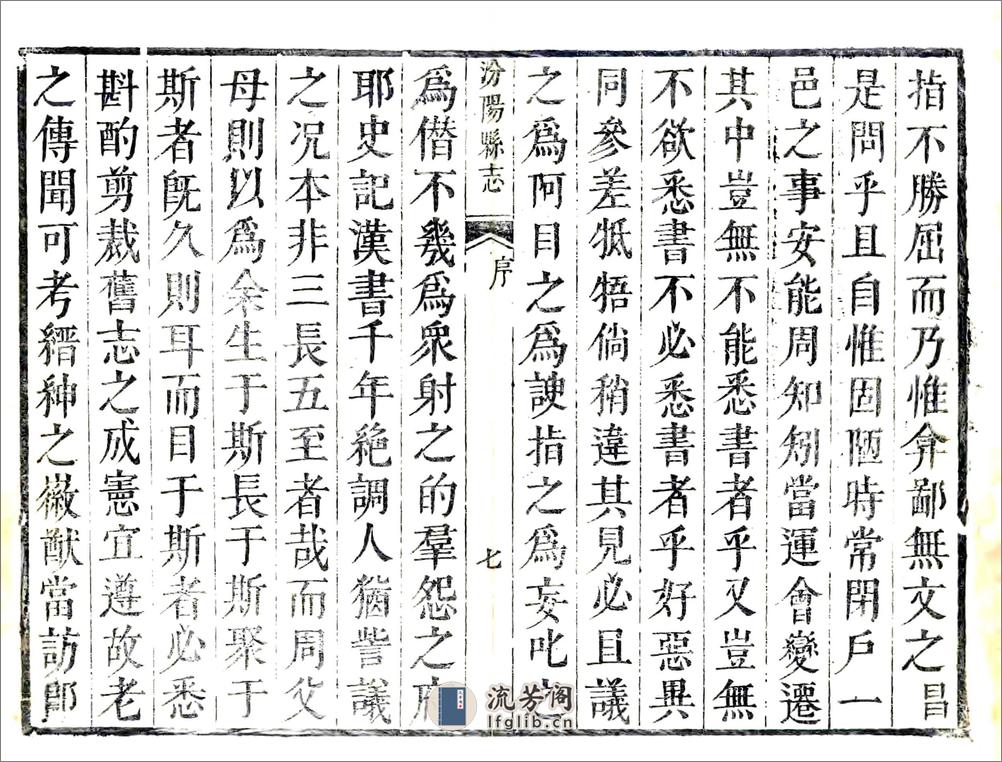 指不勝屈而乃惟弇鄙無文之昌
是問乎且自惟固陋時常閉戶一
邑之事安能周知矧當運會變遷
其中豈無不能悉書者乎又豈無
不欲悉書不必悉書者乎好惡異
同參差牴牾倘稍違其見必且議
之為阿目之為諛指之為妄叱之
汾陽縣志
序
七
為僭不幾為衆射之的羣怨之府
耶史記漢書千年絶調人猶訾議
之况本非三長五至者哉而周父
母則以為余生于斯長于斯聚于
斯者旣久則耳而目于斯者必悉
斟酌剪裁舊志之成憲宜遵故老
之傳聞可考縉紳之徽猷當訪郎
流芳阁
lfglib.cn